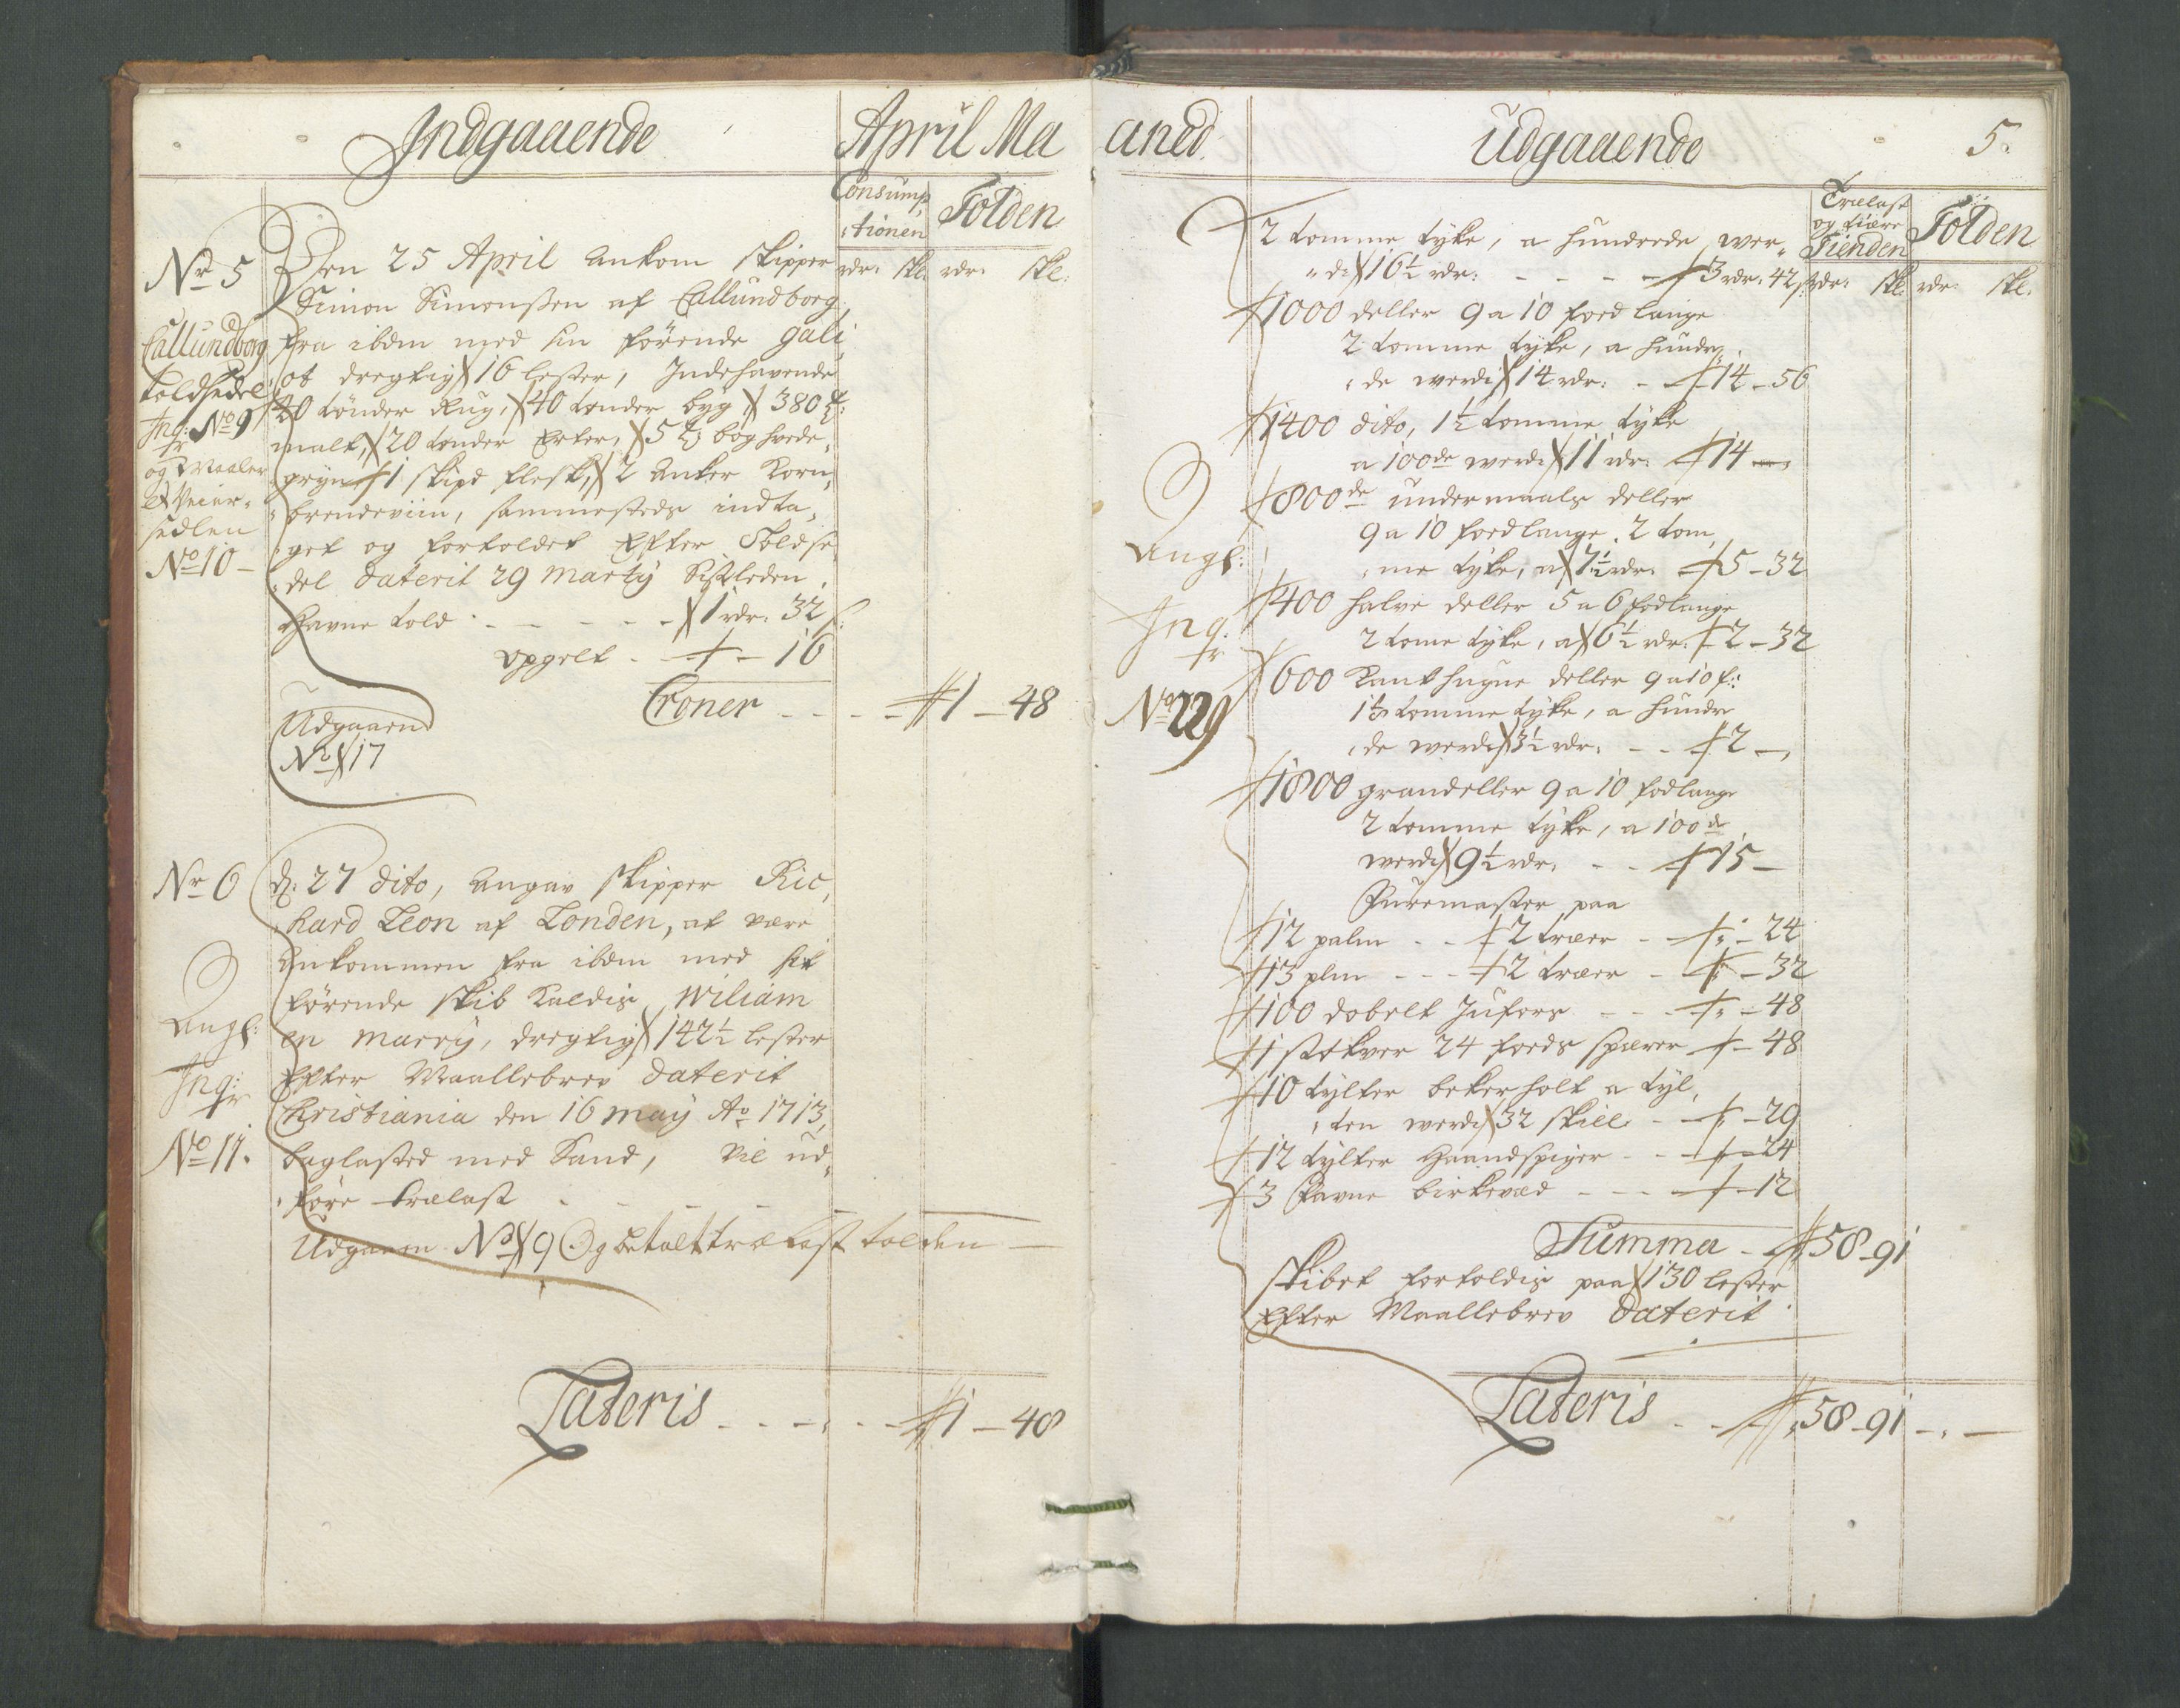 Indgaaende
April Ma
Consump,
,tionen
Tolden
rdr: ske: rdr: ske:
Nr 5
Callundborg
toldsedel
Ing: No 9
og Maaler
et Veier-
sedlen
No 10 -
Den 25 April Ankom skipper
Simon Simonssen af Callundborg
fra ibdm med sin förende gali,
,ot dregtig 16 lester, Indehavende
40 tönder Rug, 40 tönder byg, 380
malt, 20 tönder Erter, 5 bog hvede,
,gryn 1 skipd flesk, 2 Anker Korn,
,brendeviin, sammesteds indta,
,get og fortoldet Efter Toldse,
,del daterit 29 Marty Sistleden.
Havne told - - - - - 1 rdr: 32 s:
opgelt - - 16
Croner - - - - 1 - 48
Udgaaen
No 17
Nr 6
Angf:
Ing:
No 11.
d: 27 dito, Angav skipper Ric,
,hard Leon af Londen, at være
Ankommen fra ibdm med sit
förende skib Kaldis Wiliam
en Marry, dregtig 142½ lester
Efter Maallebrev daterit
Christiania den 16 may Ao 1713,
baglasted med Sand, vil ud,
,före trælast - - - -
Udgaaen No 9 Og betalt trælast tolden -
Lateris - - - - - 1 - 48
aned.
Udgaaende
5.
Trælast
og tiære
Tienden
Tolden
rdr: ske: rdr: ske:
2 tomme tyke, a hundrede wer,
,di 16½ rdr: - - - - 3 rdr: 42 s
1000 deller 9 a 10 foed lange
2 tomme tyke, a hundre,
,de werdi 14 rdr: - 14 - 56
1400 dito, 1½ tomme tyke
a 100de werdi 11 rdr: 14 -
800de undermaals deller
9 a 10 foed lange, 2 tom,
,me tyke, a 7½ rdr: 5 - 32
400 halve deller 5 a 6 fodlange
2 tome tyke, a 6½ rdr: 2 - 32
600 Kanthugne deller 9 a 10 f:
1½ tomme tyke, a hundre
,de werdi 3½ rdr: - - 2 -,
1800 grandeller 9 a 10 fodlange
2 tomme tyke, a 100de
werdi 9½ rdr: - - 15 -
Angf:
Ing:
No 229
Furemaster paa
12 palm - - 2 træer - - 24
13 plm - - - 2 træer - - 32
100 dobelt Jufers - - - - 48
1 stokver 24 foeds sparer - 48
10 tylter beker holt a tyl,
,ten werdi 32 skill: - - 29
12 tylter Haandspiger - - - 24
3 Favne birkeved - - - - 12
Summa - 58 - 91
Skibet fortoldis paa 130 lester
Efter Maallebrev daterit
Lateris - - 58 - 91 - , -